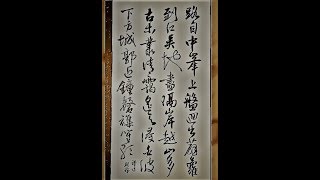 路自中峯上盤迴出薜蘿
到江吳地盡隔岸越山多
古木叢青靄遙天浸白波
下方城郭近鐘磬雜笙歌